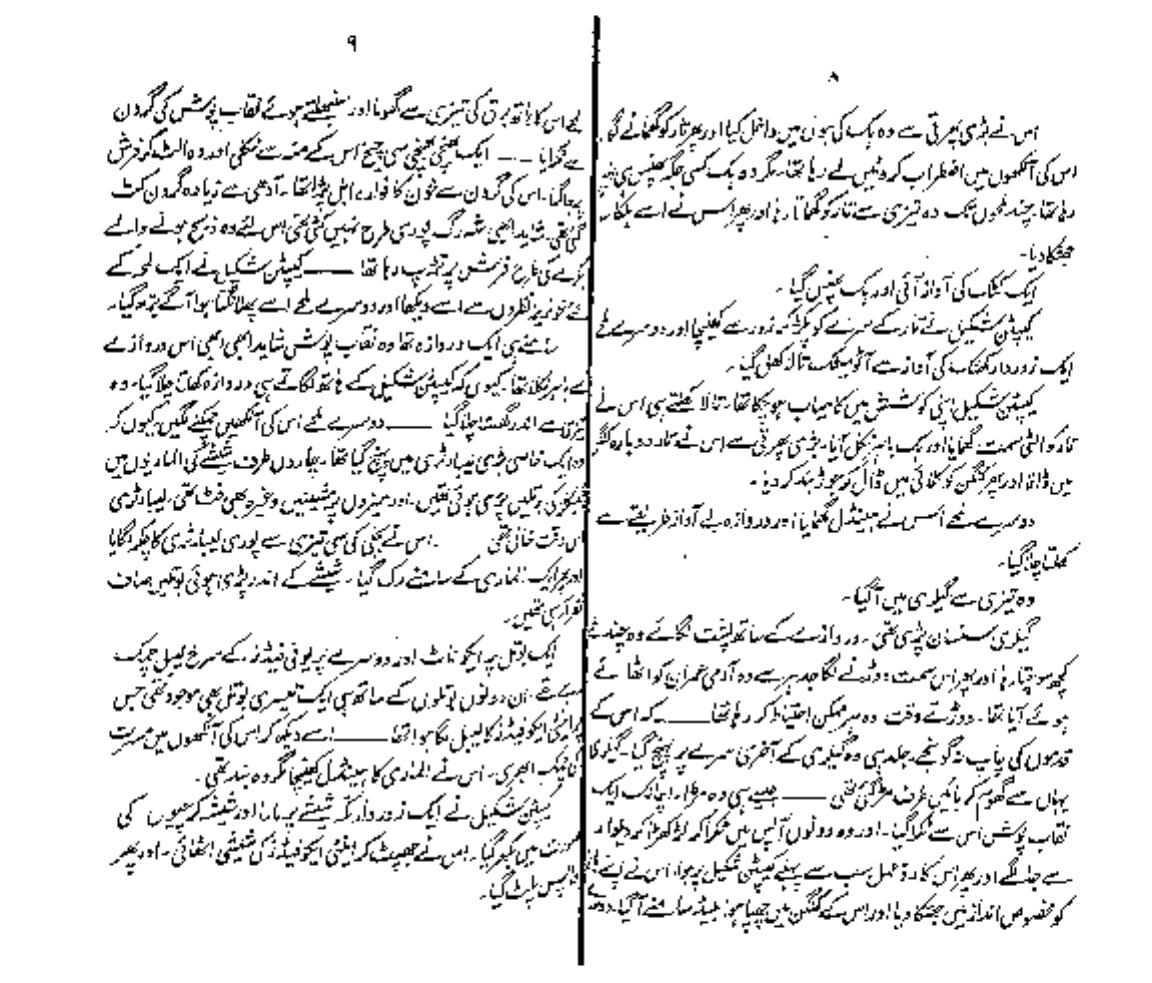 ۸
اس نے بڑی پھرتی سے وہ ہک کی ہول میں داخل کیا اور پھر تار کو گھمانے لگا
اس کی آنکھوں میں اضطراب کروٹیں لے رہا تھا۔ مگر وہ ہک کسی جگہ پھنس ہی نہیں
رہا تھا۔ چند لمحوں تک وہ تیزی سے تار کو گھماتا رہا اور پھر اس نے اسے ہلکا سا
جھٹکا دیا۔
ایک کٹک کی آواز آئی اور ہک پھنس گیا۔
کیپٹن شکیل نے تار کے سرے کو پکڑ کر زور سے کھینچا اور دوسرے لمحے
ایک زوردار کھٹاک کی آواز سے آٹومیٹک تالا کھل گیا۔
کیپٹن شکیل اپنی کوشش میں کامیاب ہو چکا تھا۔ تالا کھلتے ہی اس نے
تار کو الٹی سمت گھمایا اور ہک باہر نکل آیا۔ بڑی پھرتی سے اس نے تار دوبارہ کنگن
میں ڈالا اور پھر کنگن کو کلائی میں ڈال کر جوڑ بند کر دیا۔
دوسرے لمحے اس نے ہینڈل گھمایا اور دروازہ بے آواز طریقے سے
کھلتا چلا گیا۔
وہ تیزی سے گیلری میں آ گیا۔
گیلری سنسان پڑی تھی۔ دروازے کے ساتھ پشت لگائے وہ چند لمحے
کچھ سوچتا رہا اور پھر اس سمت دوڑنے لگا جدہر سے وہ آدمی عمران کو اٹھائے
ہوئے آیا تھا۔ دوڑتے وقت وہ ہر ممکن احتیاط کر رہا تھا ــــ کہ اس کے
قدموں کی چاپ نہ گونجے۔ جلد ہی وہ گیلری کے آخری سرے پر پہنچ گیا۔ گیلری
یہاں سے گھوم کر بائیں طرف مڑ گئی تھی ــــ جیسے ہی وہ مڑا۔ اچانک ایک
نقاب پوش اس سے ٹکرا گیا۔ اور وہ دونوں آپس میں ٹکرا کر لڑکھڑا کر دیوار
سے جا لگے اور پھر اس کا ردعمل سب سے پہلے کیپٹن شکیل پر ہوا۔ اس نے اپنے ہاتھ
کو مخصوص انداز میں جھٹکا دیا اور اس کے کنگن میں چھپا ہوا بلیڈ سامنے آ گیا۔ دوسرے
۹
لمحے اس کا ہاتھ برق کی تیزی سے گھوما اور سنبھلتے ہوئے نقاب پوش کی گردن
سے ٹکرایا ــــ ایک بھینچی بھینچی سی چیخ اس کے منہ سے نکلی اور وہ الٹ کر فرش
پر جا گرا۔ اس کی گردن سے خون کا فوارہ ابل پڑا تھا۔ آدھی سے زیادہ گردن کٹ
گئی تھی۔ شاید ابھی شہ رگ پوری طرح نہیں کٹی تھی اس لئے وہ ذبح ہونے والے
بکرے کی طرح فرش پر تڑپ رہا تھا ــــ کیپٹن شکیل نے ایک لمحہ کے
لئے خونریز نظروں سے اسے دیکھا اور دوسرے لمحے اسے پھلانگتا ہوا آگے بڑھ گیا۔
سامنے ہی ایک دروازہ تھا وہ نقاب پوش شاید ابھی ابھی اس دروازے
سے باہر نکلا تھا۔ کیوں کہ کیپٹن شکیل کے ہاتھ لگاتے ہی دروازہ کھلتا چلا گیا۔ وہ
تیزی سے اندر گھستا چلا گیا ــــ دوسرے لمحے اس کی آنکھیں چمکنے لگیں کیوں کہ
وہ ایک خاصی بڑی لیبارٹری میں پہنچ گیا تھا۔ چاروں طرف شیشے کی الماریوں میں
کیمیکلز کی بوتلیں پڑی ہوئی تھیں۔ اور میزوں پر مشینیں وغیرہ بھی فٹ تھی۔ لیبارٹری
اس وقت خالی تھی۔ اس نے بجلی کی سی تیزی سے پوری لیبارٹری کا چکر لگایا
اور پھر ایک الماری کے سامنے رک گیا۔ شیشے کے اندر پڑی ہوئی بوتلیں صاف
نظر آ رہی تھیں۔
ایک بوتل پہ ایکو ناٹ اور دوسرے پر یونی فیڈز کے سرخ لیبل چپک
رہے تھے۔ ان دونوں بوتلوں کے ساتھ ہی ایک تیسری بوتل بھی موجود تھی جس
پر اینٹی ایکو فیڈز کا لیبل لگا ہوا تھا ــــ اسے دیکھ کر اس کی آنکھوں میں مسرت
کی چمک ابھری۔ اس نے الماری کا ہینڈل کھینچا مگر وہ بند تھی۔
کیپٹن شکیل نے ایک زوردار مکہ شیشے پر مارا اور شیشہ کرچیوں کی
صورت میں بکھر گیا۔ اس نے جھپٹ کر اینٹی ایکو فیڈز کی شیشی اٹھائی۔ اور پھر
واپس پلٹ گیا۔